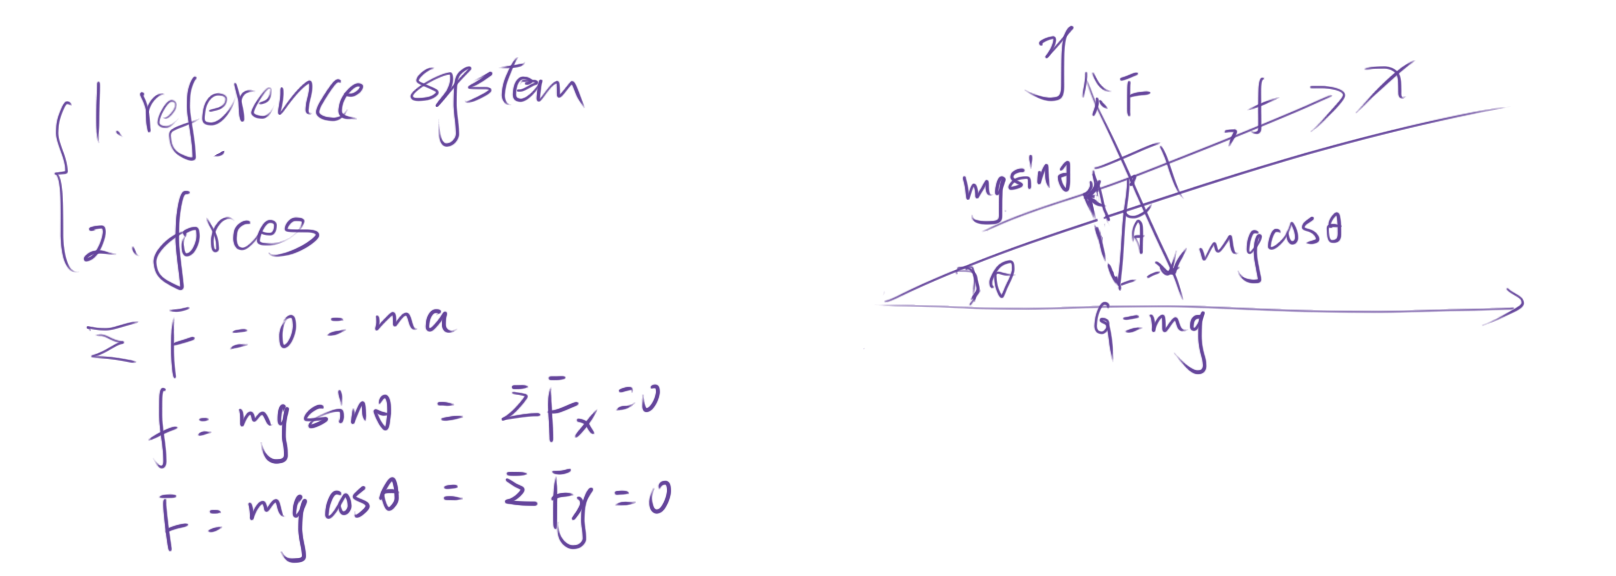 1. reference system
2. forces
Σ F = 0 = ma
f = mg sinθ = ΣFx = 0
F = mg cosθ = ΣFy = 0
y
F
f
x
mgsinθ
θ
mgcosθ
θ
G = mg